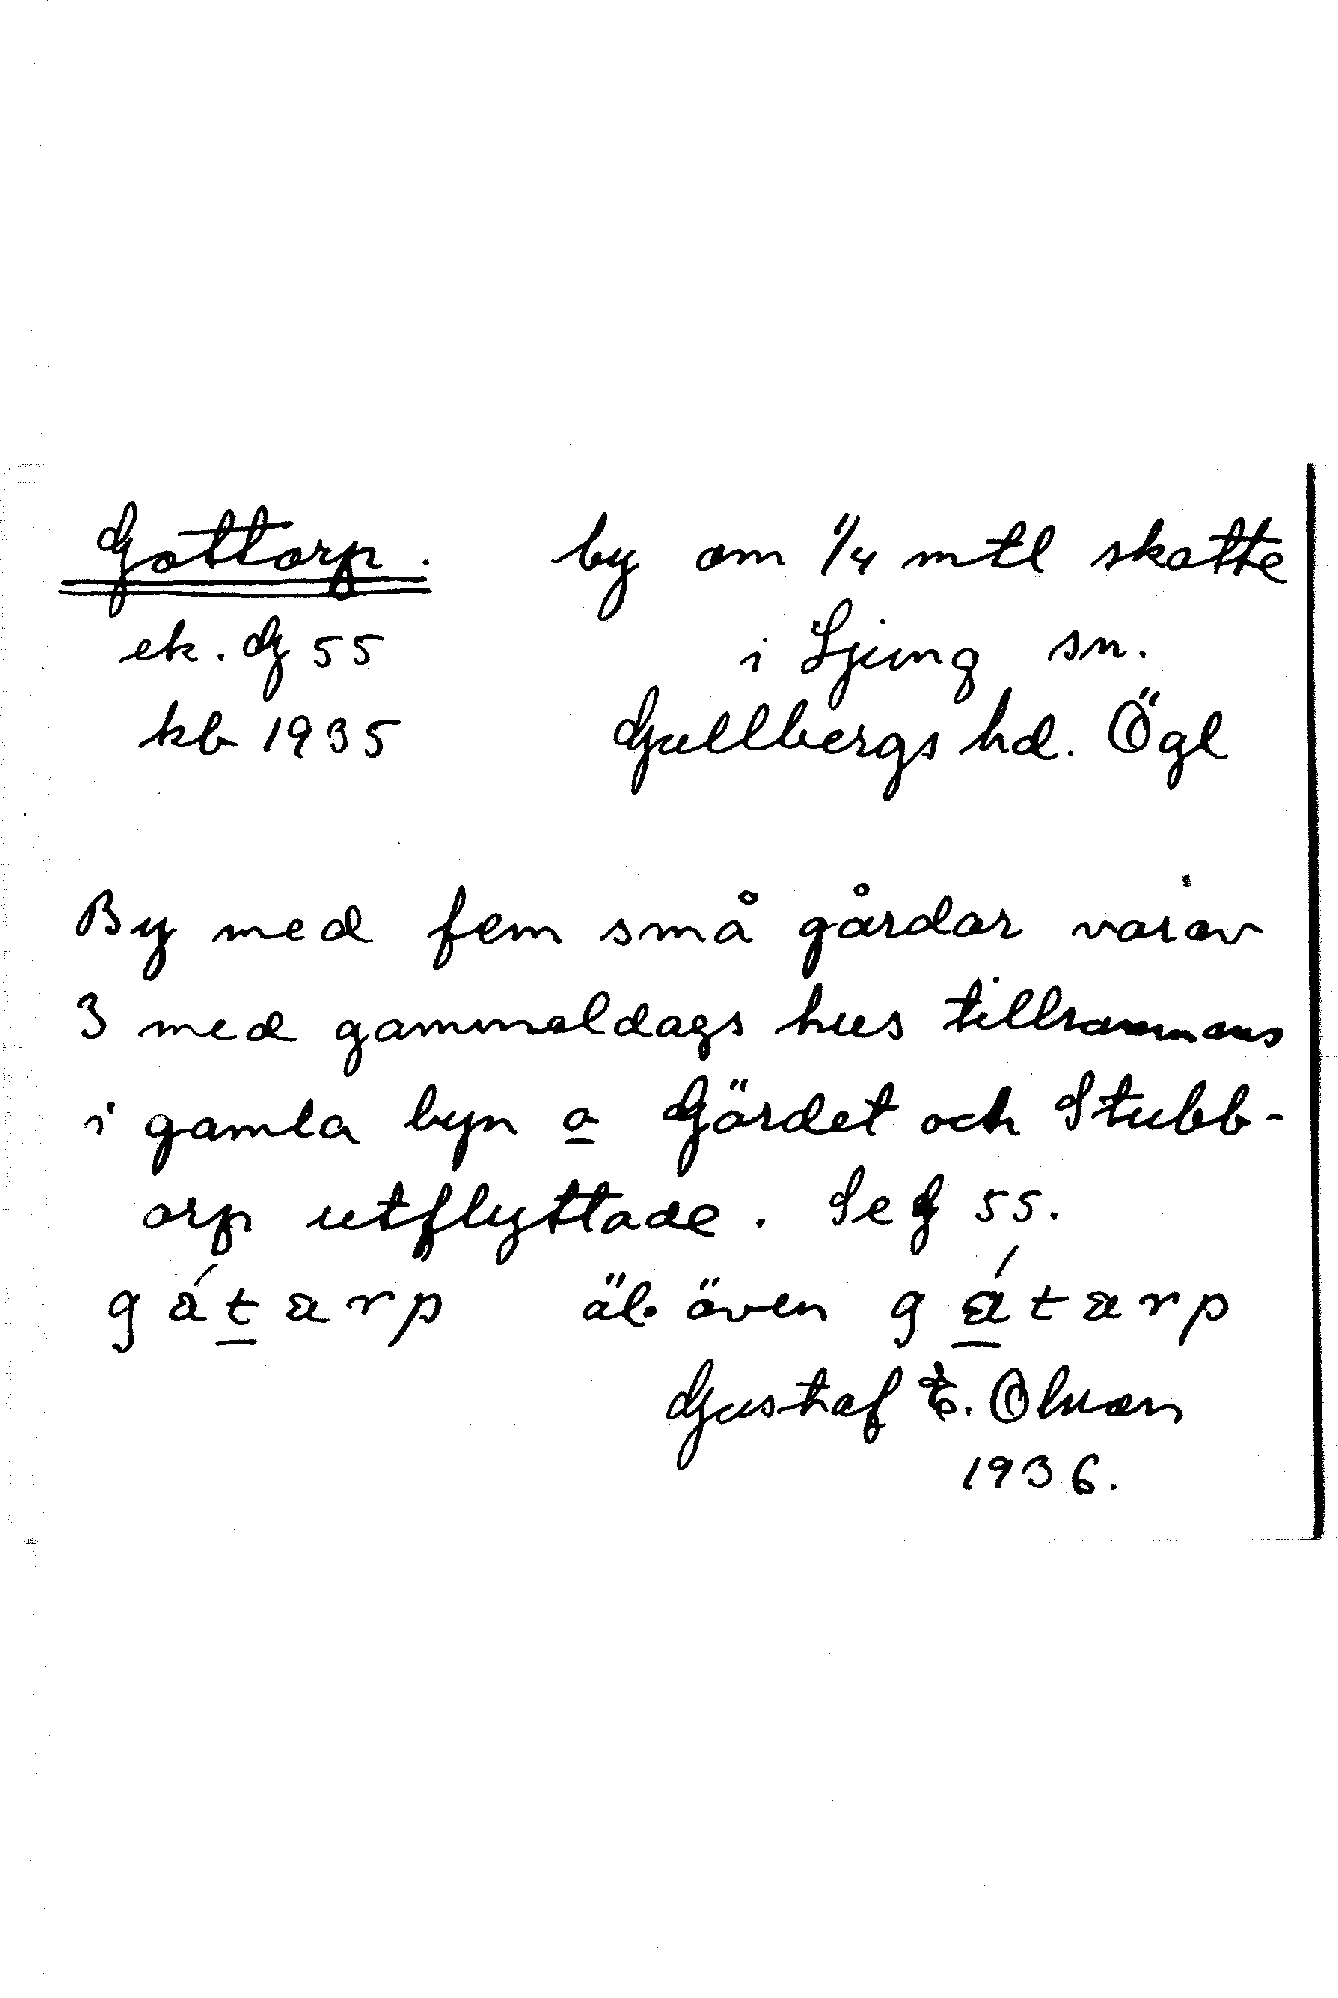 Gottorp. by om 1/4 mtl skatte
ek. G 55 i Ljung sn.
kb 1935 Gullbergs hd. Ögl
By med fem små gårdar varav
3 med gammaldags hus tillsammans
i gamla byn o Gärdet och Stubb-
orp utflyttade. Se G 55.
äl. även
Gustaf E. Olson
1936.